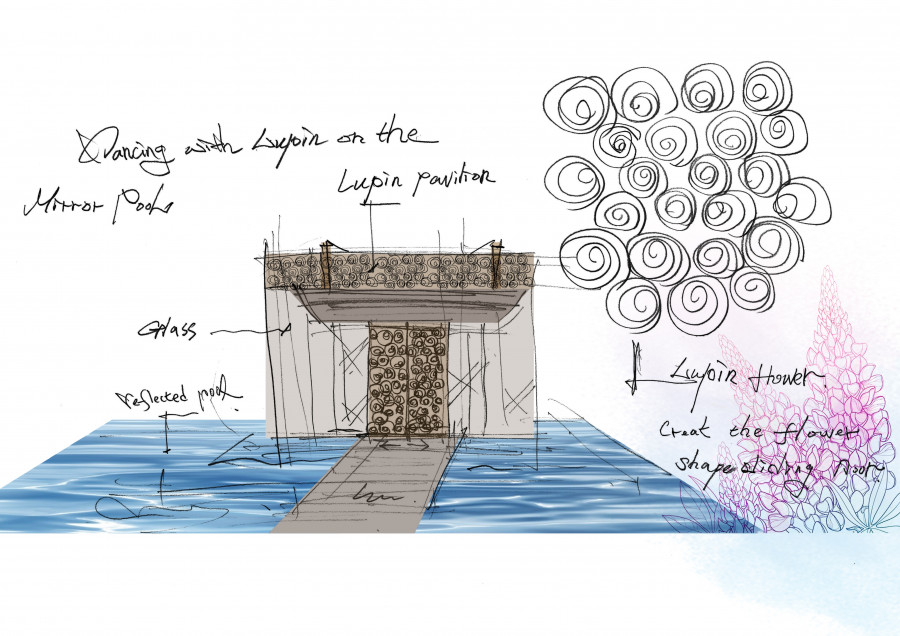 Dancing with Lupin on the
Mirror Pool
Lupin pavilion
Glass
reflected pool
Lupin flower
Creat the flower
shape sliding Door